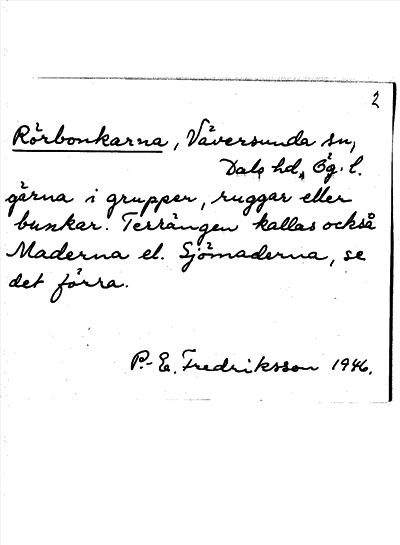 2
Rörbonkarna, Väversunda sn,
Dals hd, Ög. l.
gärna i grupper, ruggar eller
bunkar. Terrängen kallas också
Maderna el. Sjömaderna, se
det förra.
P.-E. Fredriksson 1946.